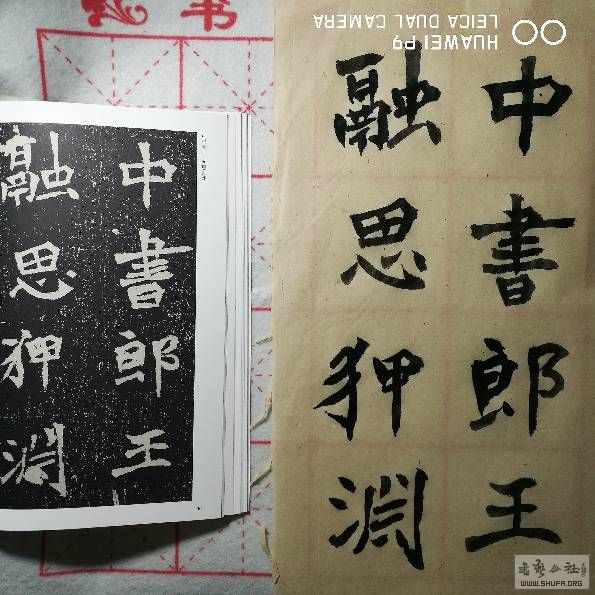 中書郎王
融思狎淵
中書郎王
融思狎淵
书
HUAWEI P9
LEICA DUAL CAMERA
书艺公社
WWW.SHUFA.ORG